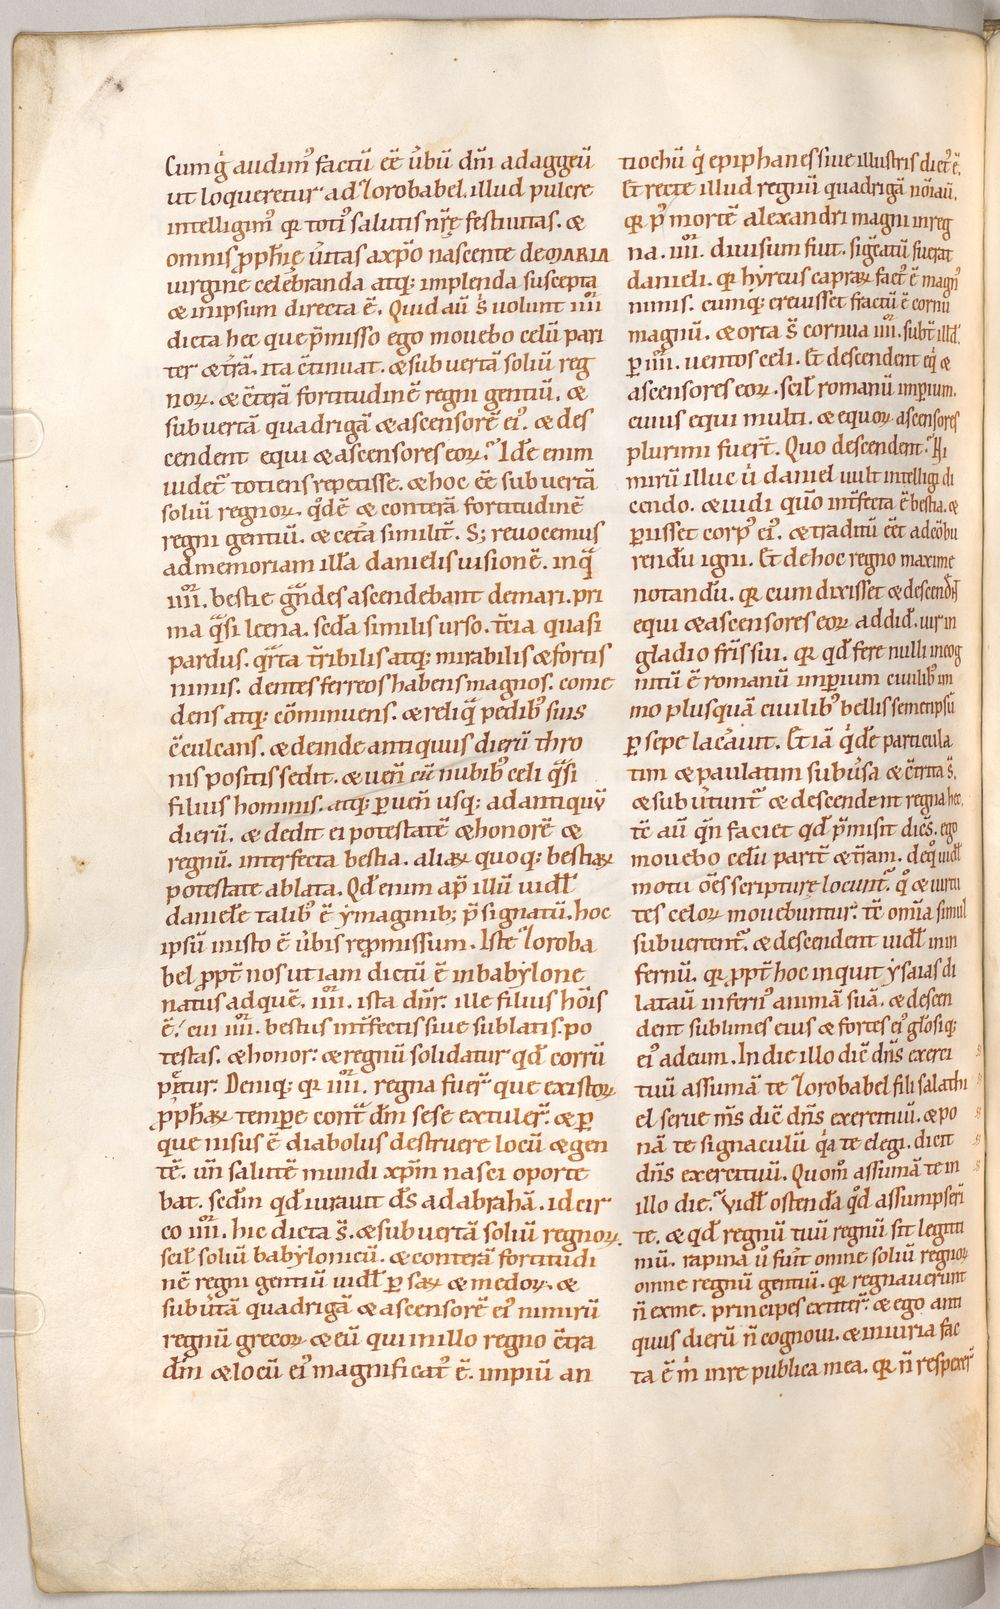 Cum g̊ audim᾽ factū eē úbū dn̄i ad aggeū
ut loqueretur ad Zorobabel. illud pulcre
intelligim᾽ qr toti᾽ salutis nr̄ę festiuitas. &
omnis ꝓph̄ię úitas a xp̄o nascente de MARIA
uirgine celébranda atq; implenda suscepta
& in ipsum directa ē. Quid aū s̄ uolunt iiii
dicta hec que p̄misso ego mouebo celū pari
ter & tr̄ā. ita ꝯtinuat. & subuertā soliū reg
noꝝ. & ꝯterā fortitudinē regni gentiū. &
subuertā quadrigā & ascensorē ei᾽. & des
cendent equi & ascensores eoꝝ. Idē enim
uidet᷑ totiens repetisse. & hoc eē subuertā
soliū regnoꝝ. qd̊ē & conterā fortitudinē
regni gentiū. & cet̄a similit̄. S; reuocemus
ad memoriam illā danielis uisionē. in q̄
iiii. bestie gn̄des ascendebant de mari. pri
ma q̄si leena. sed̄a similis urso. t̄cia quasi
pardus. qr̄ta tr̄ibilis atq; mirabilis & fortis
nimis. dentes ferreos habens magnos. come
dens atq; cōminuens. & reliq̄ pedib᾽ suis
ꝯculcans. & deinde antiquus dierū thro
nis positis sedit. & uen̄ cū nubib᾽ celi q̄si
filius hominis. atq; ꝑuen̄ usq; ad antiquū
dierū. & dedit ei potestatē & honorē &
regnū. interfecta bestia. aliaꝝ quoq; bestiaꝝ
potestate ablata. Qd̄ enim ap̄ illū uidl̄
daniel̄e talib᾽ ē ymaginib; p̄signatū. hoc
ipsū in isto ē úbis rep̄missum. Iste Zoroba
bel ꝓpt̄ nos ut iam dictū ē in babylone
natus ad quē. iiii. ista dn̄r. ille filius hōis
ē. cui iiii. bestiis int̄fectis siue sublatis. po
testas. & honor. & regnū solidatur qd̄ corrū
pit̄ur. Deniq; qr iiii. regna fuer̄ que existoꝝ
ꝓph̄aꝝ tempore cont̄ dm̄ sese extuler̄. & ꝑ
que nisus ē diabolus destruere locū & gen
tē. un̄ salutē mundi xp̄m nasci oporte
bat. scd̄m qd̄ iurauit dS̄ ad abrahā. idcir
co iiii. hic dicta s̄. & subuertā soliū regnoꝝ.
scil̄ soliū babylonicū. & conterā fortitudi
nē regni gentiū uidl̄ ꝑsaꝝ & medoꝝ. &
subútā quadrigā & ascensorē ei᾽ nimirū
regnū grecoꝝ & eū qui in illo regno ꝯtra
dm̄ & locū ei᾽ magnificat᾽ ē. impiū an
tiochū q̊ epiphanes siue illustris dict᾽ ē.
Et recte illud regnū quadrigā nōiaū.
qr p᾽ mortē alexandri magni in reg
na. iiii. diuisum fuit. sigc̄atū fuerat
danieli. qr hyrcus capraꝝ fact᾽ ē magn᾽
nimis. cumq; creuisset fractū ē cornū
magnū. & orta s̄ cornua iiii. subt̄ illd̄.
ꝑ iiii. uentos celi. Et descendent eq̊ &
ascensores eoꝝ. scil̄ romanū impium.
cuius equi multi. & equoꝝ ascensores
plurimi fuer̄t. Quo descendent. Ni
mirū illuc ú daniel uult intelligi di
cendo. & uidi quō int̄fecta ē bestia. &
ꝑisset corp᾽ ei᾽. & traditū eēt ad cōbu
rendū igni. Et de hoc regno maxime
notandū. qr cum dixisset & descend̄t
equi & ascensores eoꝝ addid̄. uir in
gladio fr̄is sui. qr qd̄ fere nulli incog
nitū ē romanū impium ciuilib᾽ im
mo plusquā ciuilib᾽ bellis semetipsū
ꝑsepe lac̄auit. Et iā q̊dē particula
tim & paulatim subúsa & ꝯtrita s̄.
& subútunt̄ & descendent regna hec.
tē aū q̄n faciet qd̄ p̄misit dic̄s. ego
mouebo celū parit̄ & tr̄am. de q᾽ uidl̄
motu oēs scripturę locunt̄. q᾽ & uirtu
tes celoꝝ mouebuntur. tē om̄ia simul
subuertent̄. & descendent uidl̄ in in
fernū. qr ꝓpt̄ hoc inquit ysaias di
latauit infern᾽ animā suā. & descen
dent sublimes eius & fortes ei᾽ glōsiq;
ei᾽ ad eum. In die illo dic̄ dn̄s exerci
tuū assumā te Zorobabel fili salathi
el serue m̄s dic̄ dn̄s exercituū. & po
nā te signaculū q̊a te elegi. dicit
dn̄s exercituū. Quom̄ assūmā te in
illo die. Uidl̄ ostendā qd̄ assumpserī
te. & qd̄ regnū tuū regnū sit legiti
mū. rapina ú fuit omne soliū regnoꝝ
omne regnū gentiū. qr regnauerunt
n̄ ex me. principes extiter̄. & ego anti
quus dierū n̄ cognoui. & iniuria fac
ta ē m̊ in re publica mea. qr n̄ respexer̄